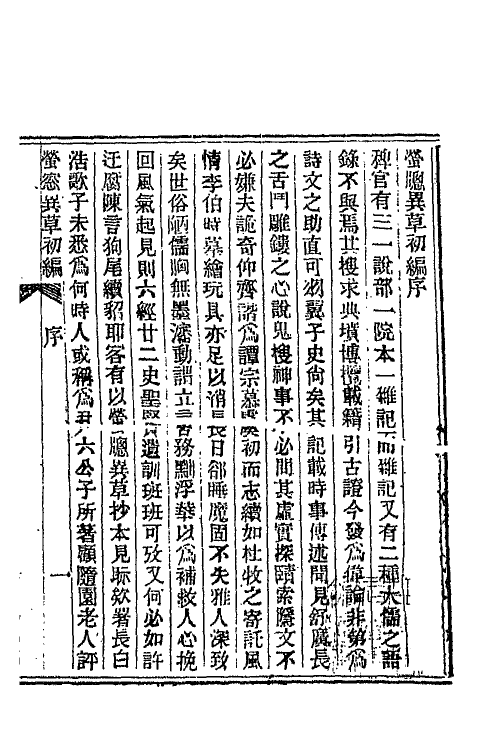 螢牕異草初編序
稗官有三一說部一院本一雜記而雜記又有二種大儒之語
錄不與焉其搜求典墳博攬載籍引古證今發爲偉論非第爲
詩文之助直可羽翼子史尙矣其記載時事傳述聞見舒廣長
之舌鬥雕鏤之心說鬼搜神事不必問其虛實探賾索隱文不
必嫌夫詭奇仰齊諧爲譚宗慕虞初而志續如杜牧之寄託風
情李伯時摹繪玩具亦足以消長日卻睡魔固不失雅人深致
矣世俗陋儒胸無墨瀋動謂立言務黜浮華以爲補救人心挽
回風氣起見則六經廿二史聖賢遺訓班班可攷又何必如許
迂腐陳言狗尾續貂耶客有以螢牕異草抄本見眎欵署長白
浩歌子未悉爲何時人或稱爲尹六公子所著顧隨園老人評
螢窓異草初編
序
一